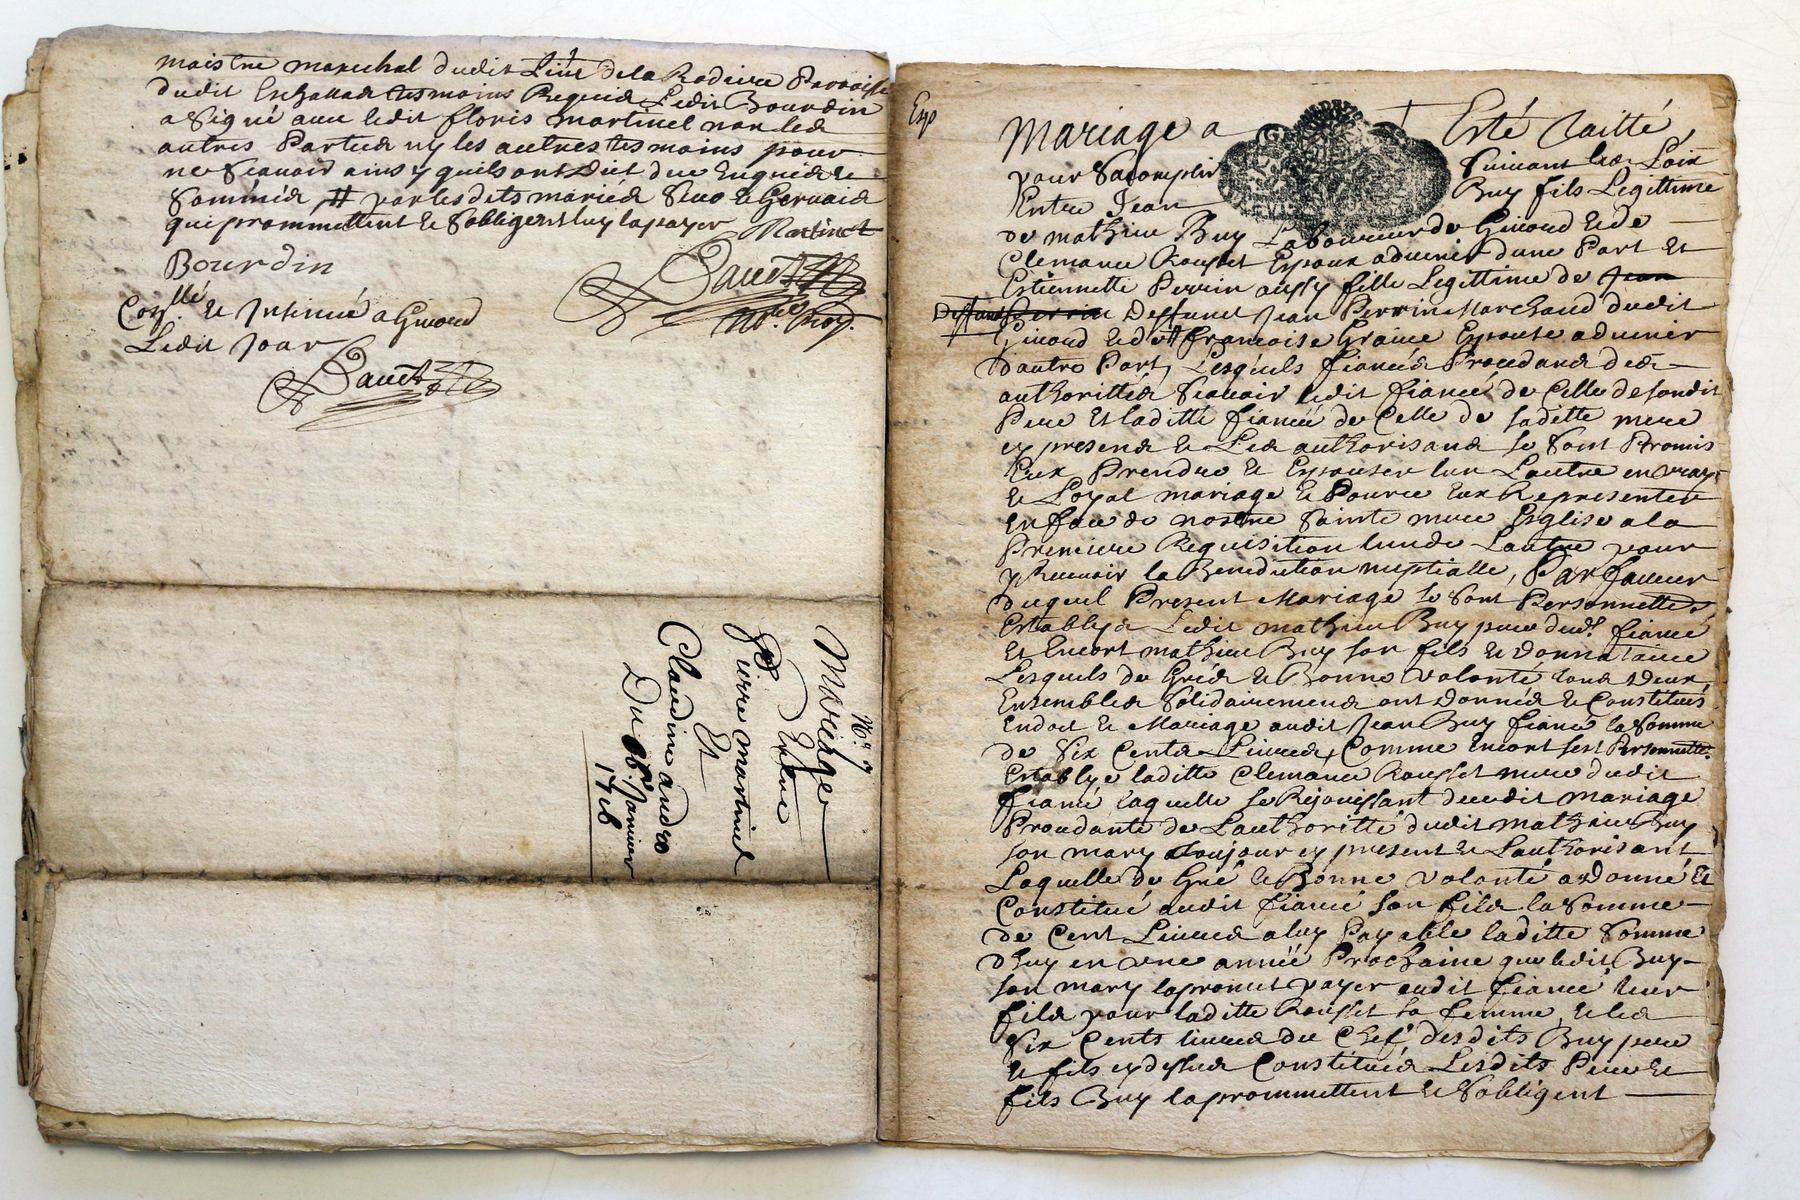 maistre marechal dudit Lieu de la Rodiere Parroisse
dudit tesmoins Requis Ledit Bourdin
a Signé avec ledit floris martinet non les
autres Parties ny les autres tesmoins pour
ne Scauoir ainsy quils ont Dict due Enquis et
Sommés, # par lesdits mariés Seuo et Gervais
qui prommettent et Sobligent luy la payer Martinet
Bourdin
Baudt
No.re Roy.
Con.llé et Insinué a Giuord
Ledit Jour
Baudt
N.a 9
Mariage
D Entre
Pierre martinet
Et
Claudine andre
Du 8e Janvier
1718
Exp
Mariage a Esté Traitté
pour Sacomplir Suiuant les Loix
Entre Jean Buy fils Legittime
de mathieu Buy Laboureur de Giuord et de
Clemance Rousset Espoux aduenir dune Part Et
Estiennette Perrin aussy fille Legittime de Jean
Deffunt Perrin Deffunct Jean Perrin Marchand dudit
Giuord et de # francoise Graine Espouse aduenir
dautre Part, Lesquels fiancés Procedans des
authorittés Scauoir ledit fiancé de Celle de sondit
Pere Et laditte fiancée de Celle de saditte mere
cy presens et Les authorisans se Sont Promis
Eux Prendre et Espouser lun Lautre en vray
et Loyal mariage et Pource Eux Representer
en face de nostre Sainte mere Esglise a la
Premiere Requisition lun de Lautre pour
y Receuoir la Benediction nuptialle, Par faueur
duquel Present Mariage se Sont Personnelles
Establys Ledit mathieu Buy pere dud.t fiancé
Et Encort mathieu Buy son fils et donnataire
Lesquels de Grés et Bonne volonté tous deux
Ensembles Solidairemens ont donnés et Constitués
Endot et Mariage audit Jean Buy fiancé la Somme
de Six Cents Liures, Comme Encort sest Personnelle.
Establye laditte Clemance Rousset mere dudit
fiancé laquelle se Rejouissant decedit mariage
Procedante de Lauthoritté dudit mathieu Buy
son mary toujour cy present et Lauthorisant
Laquelle de Gré et Bonne volonté a donné Et
Constitué audit fiancé son fils la Somme
de Cent Liures a luy Payable laditte Somme
dhuy en une année Prochaine que ledit Buy
son mary la promet payer audit fiancé leur
fils pour laditte Rousset sa femme, et les
Six Cents liures du Chef desdits Buy pere
et fils cy dessus Constitués Lesdits Pere Et
fils Buy la prommettent et Sobligent